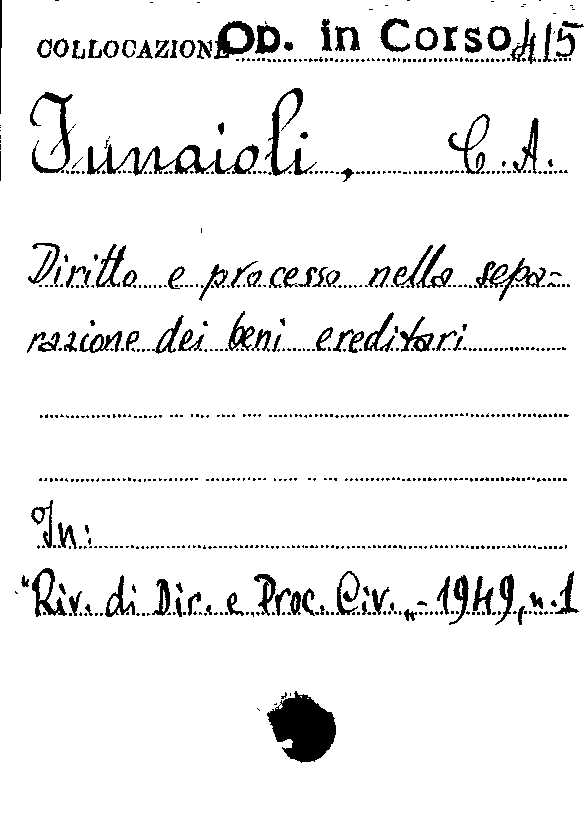 COLLOCAZIONE Op. in Corso 415
Funaioli, C. A.
Diritto e processo nella sepa-
razione dei beni ereditari
In:
"Riv. di Dir. e Proc. Civ. „ - 1949, n. 1